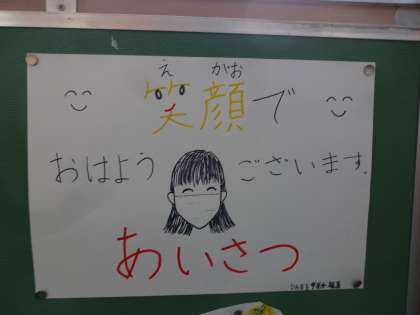 え がお
笑顔で
おはよう ございます.
あいさつ